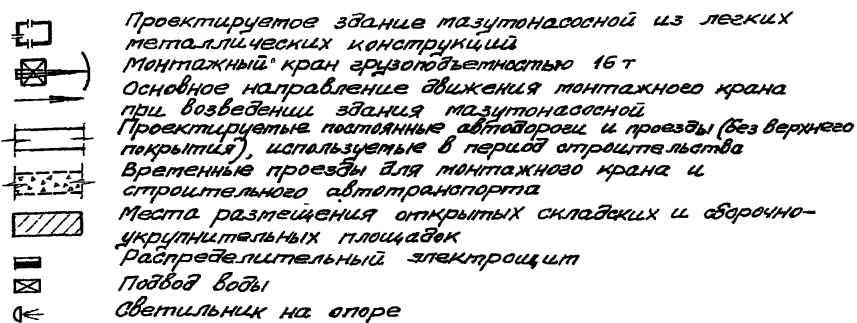 Проектируемое здание мазутонасосной из легких
металлических конструкций
Монтажный кран грузоподъемностью 16 т
Основное направление движения монтажного крана
при возведении здания мазутонасосной
Проектируемые постоянные автодороги и проезды (без верхнего
покрытия), используемые в период строительства
Временные проезды для монтажного крана и
строительного автотранспорта
Места размещения открытых складских и сборочно-
укрупнительных площадок
Распределительный электрощит
Подвод воды
Светильник на опоре